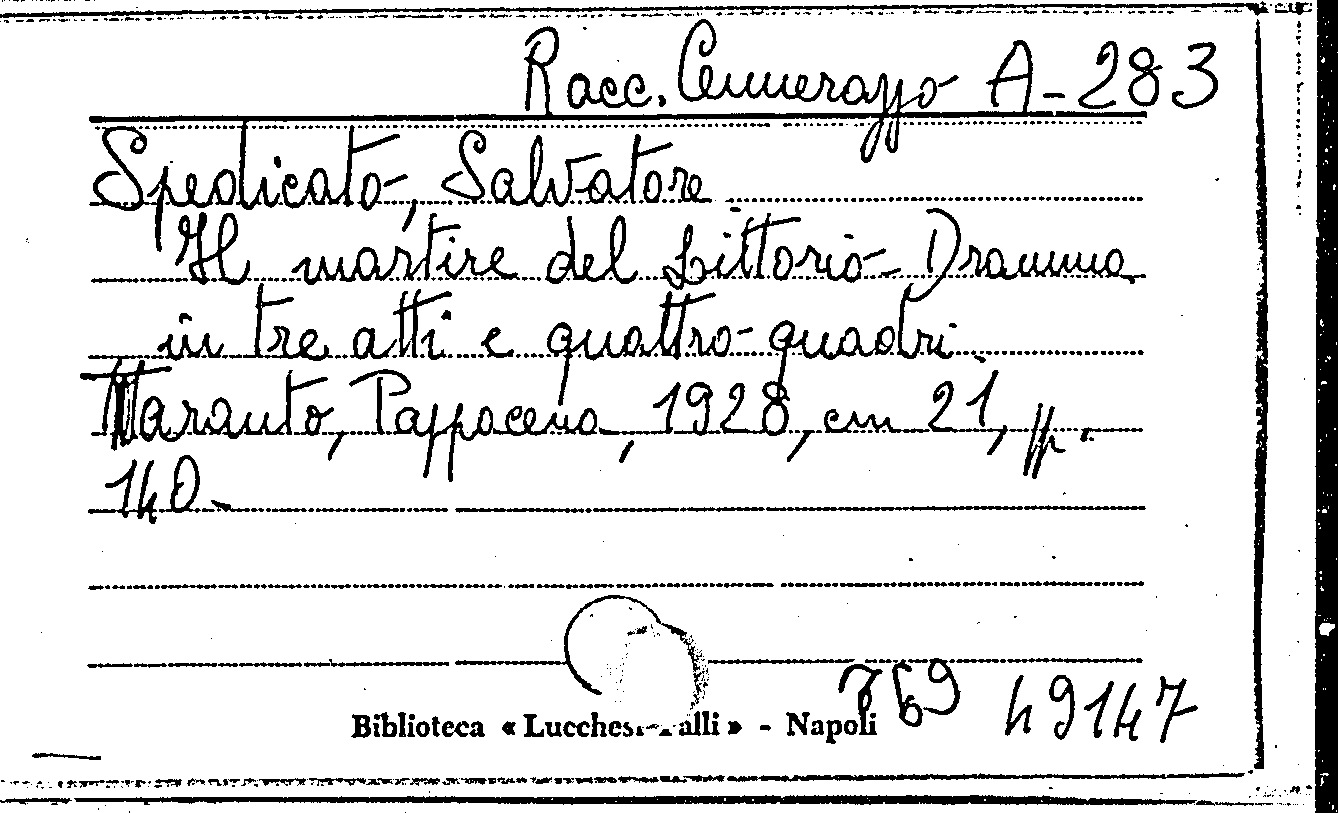 Racc. Cennerazzo A-283
Spedicato, Salvatore
Il martire del Littorio - Dramma
in tre atti e quattro quadri.
Taranto, Pappacena, 1928, cm 21, pp.
140.
769 49147
Biblioteca « Lucchesi-Palli » - Napoli